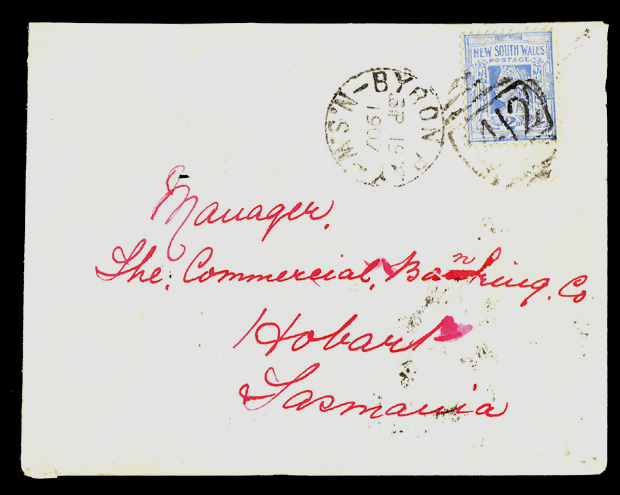 NEW SOUTH WALES
POSTAGE
BYRON BAY
SP 19
1907
N.S.W
Manager,
The, Commercial, Banking. Co
Hobart
Tasmania